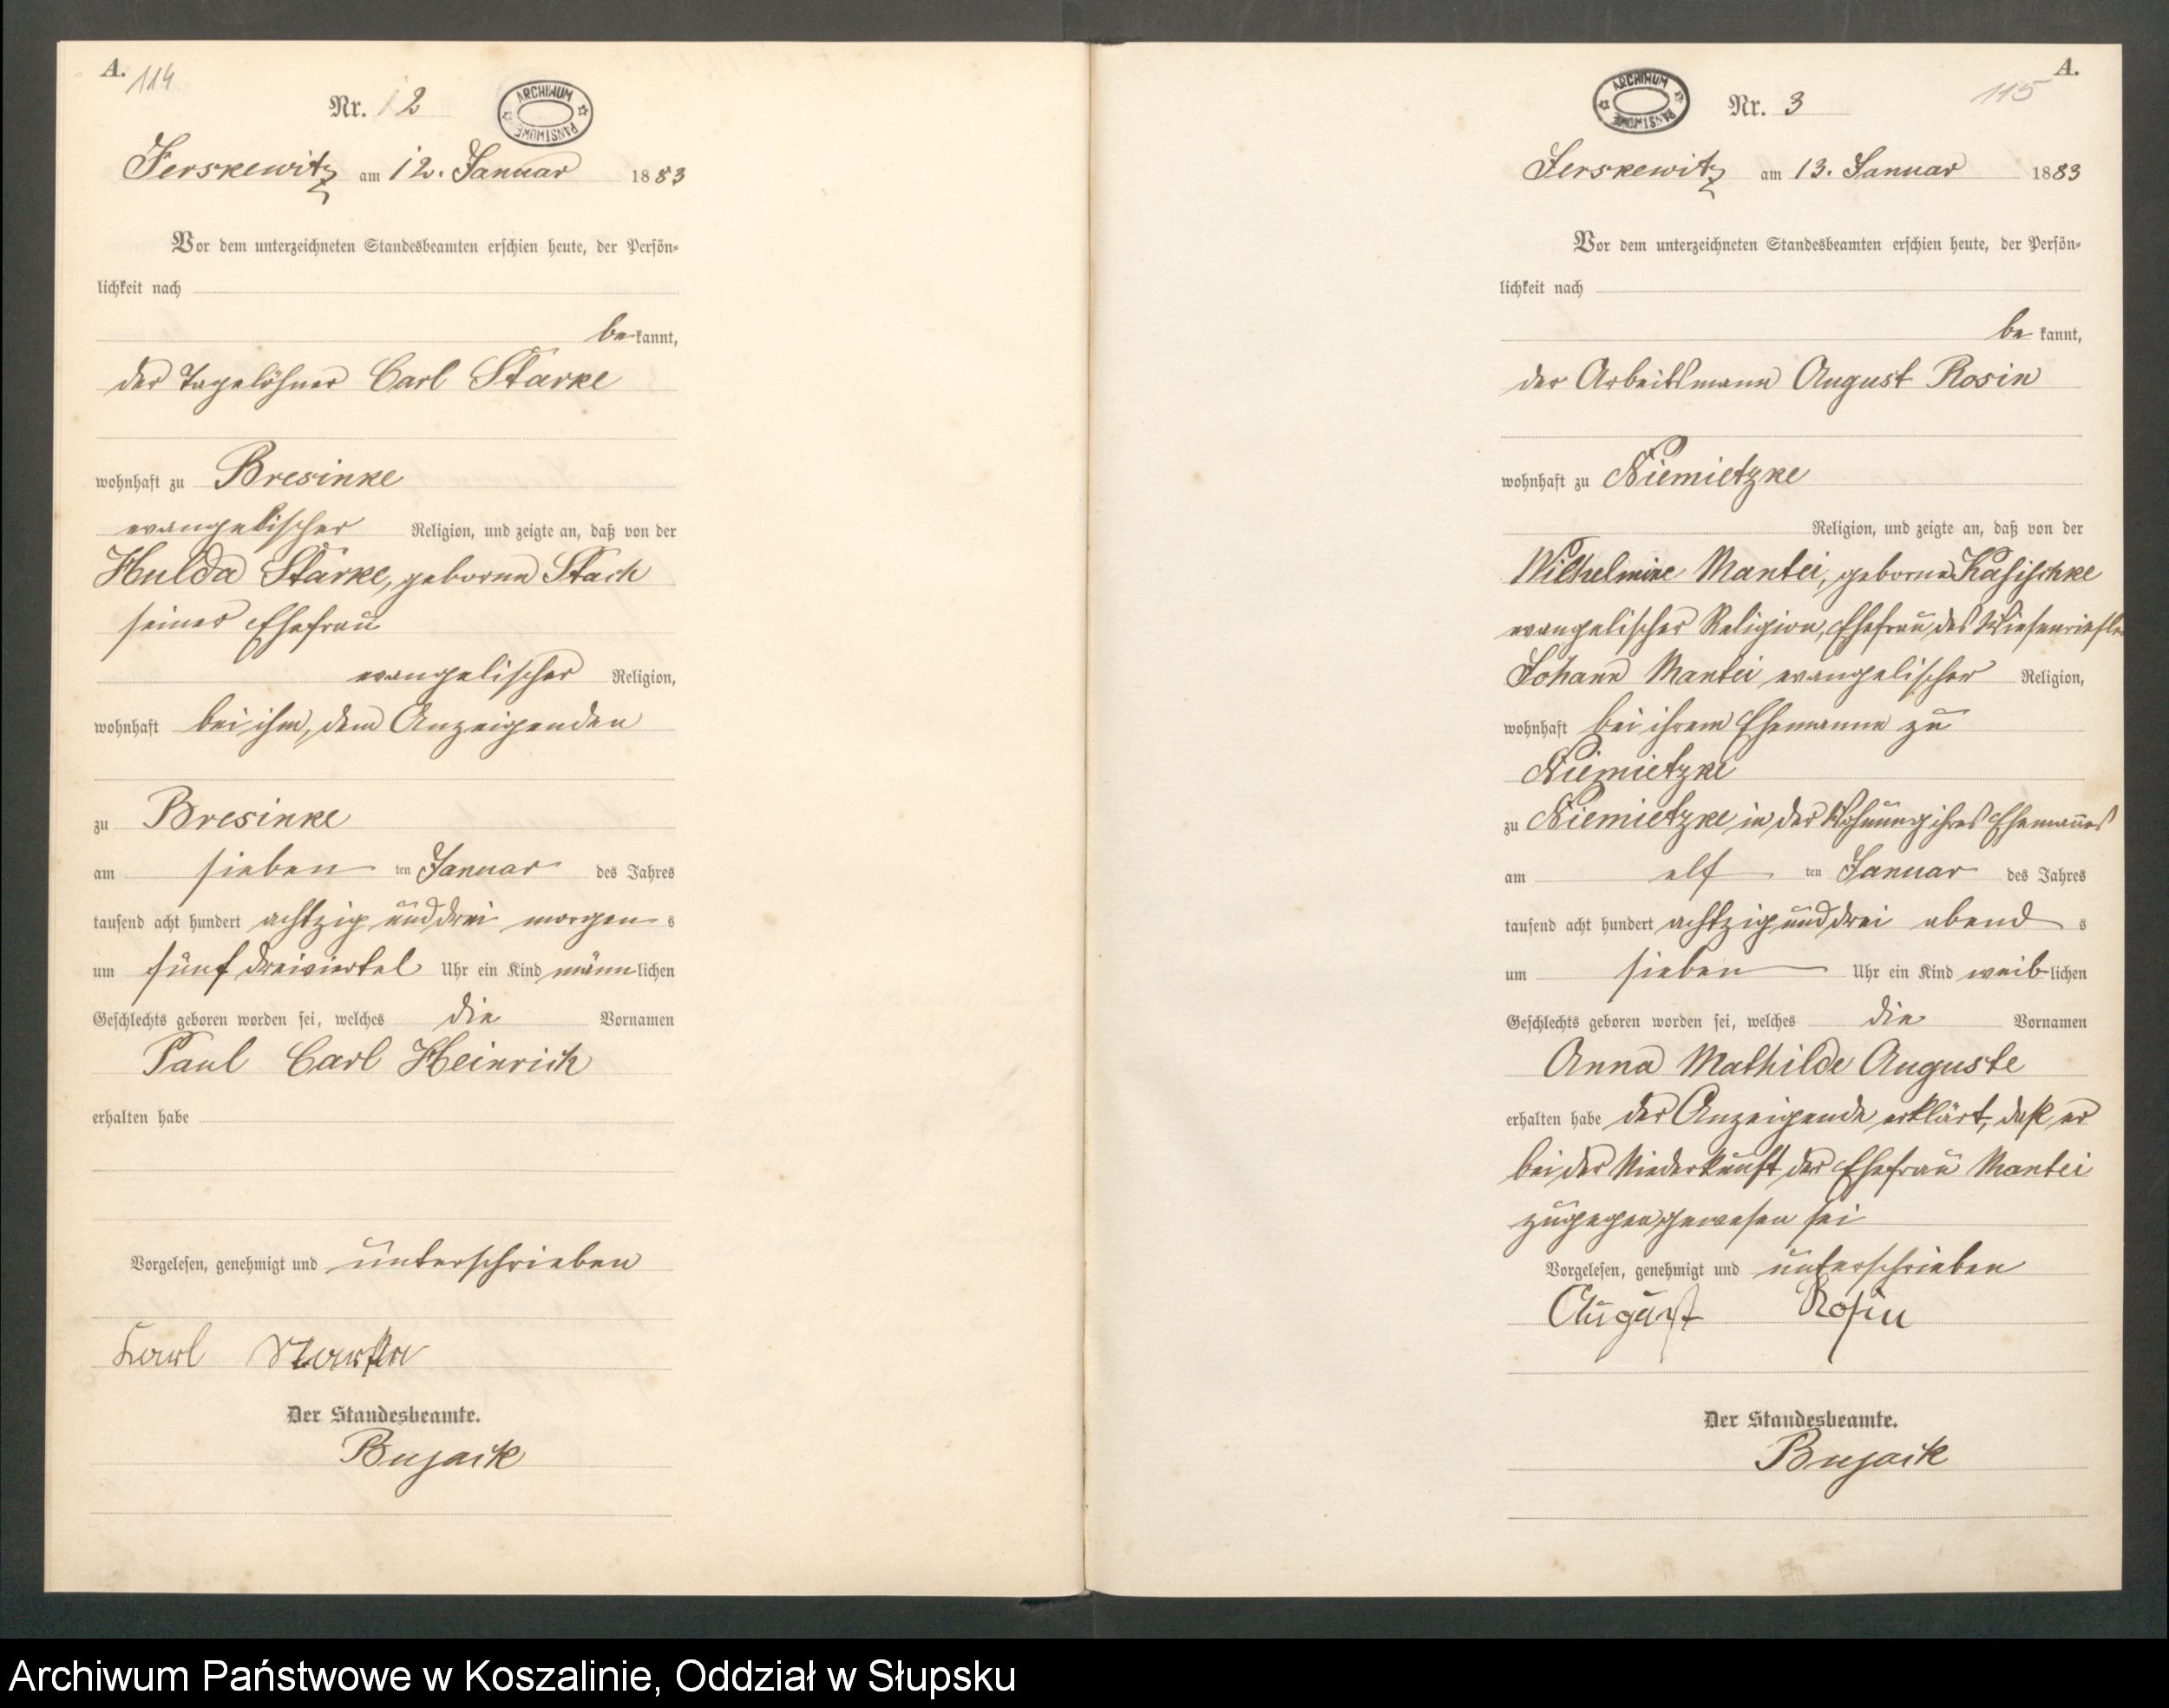 A.
114
Nr. 2
ARCHIWUM PAŃSTWOWE
Jerskewitz am 12. Januar 1883
Vor dem unterzeichneten Standesbeamten erschien heute, der Persön-
lichkeit nach
bekannt,
der Tagelöhner Carl Starke
wohnhaft zu Bresinke
evangelischer Religion, und zeigte an, daß von der
Hulda Starke, geborne Stach
seiner Ehefrau
evangelischer Religion,
wohnhaft bei ihm, dem Anzeigenden
zu Bresinke
am sieben ten Januar des Jahres
tausend acht hundert achtzig und drei morgens
um fünf dreiviertel Uhr ein Kind männlichen
Geschlechts geboren worden sei, welches die Vornamen
Paul Carl Heinrich
erhalten habe
Vorgelesen, genehmigt und unterschrieben
Karl Starke
Der Standesbeamte.
Bujack
A.
115
ARCHIWUM PAŃSTWOWE
Nr. 3
Jerskewitz am 13. Januar 1883
Vor dem unterzeichneten Standesbeamten erschien heute, der Persön-
lichkeit nach
bekannt,
der Arbeitsmann August Rosin
wohnhaft zu Niemietzke
Religion, und zeigte an, daß von der
Wilhelmine Mantei, geborne Kasischke
evangelischer Religion, Ehefrau des
Johann Mantei evangelischer Religion,
wohnhaft bei ihrem Ehemanne zu
Niemietzke
zu Niemietzke in der Wohnung ihres Ehemannes
am elf ten Januar des Jahres
tausend acht hundert achtzig und drei abends
um sieben Uhr ein Kind weiblichen
Geschlechts geboren worden sei, welches die Vornamen
Anna Mathilde Auguste
erhalten habe der Anzeigende erklärt, daß er
bei der Niederkunft der Ehefrau Mantei
zugegen gewesen sei
Vorgelesen, genehmigt und unterschrieben
August Rosin
Der Standesbeamte.
Bujack
Archiwum Państwowe w Koszalinie, Oddział w Słupsku